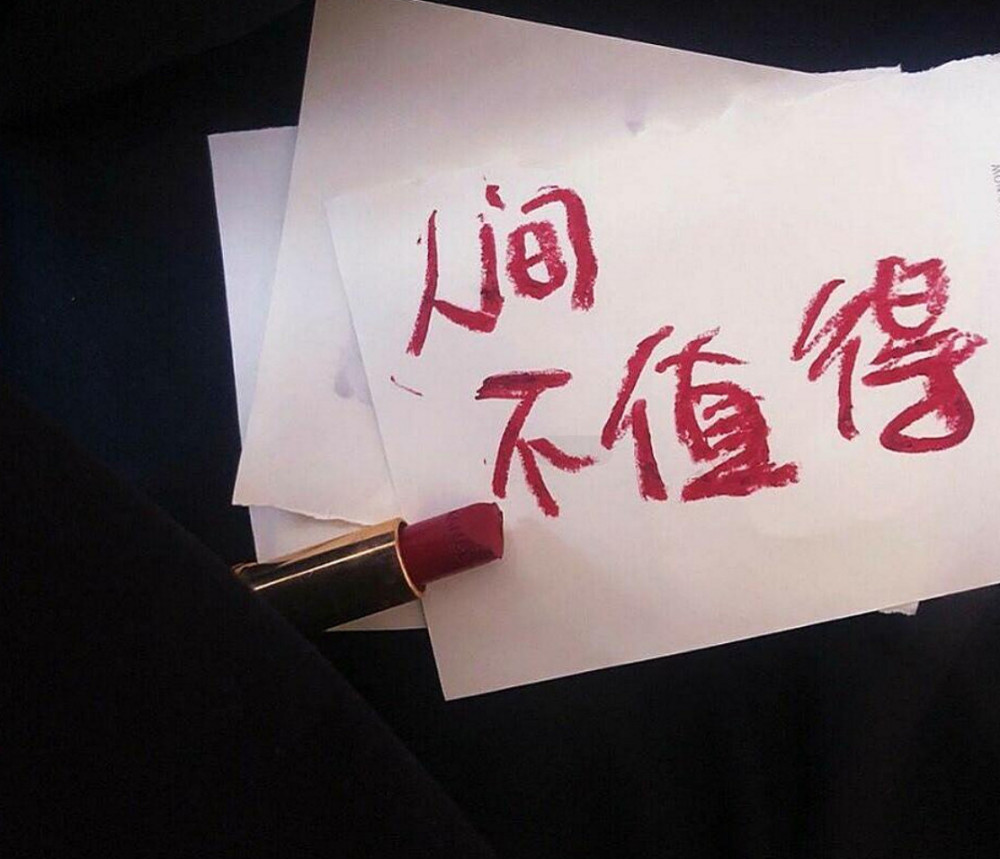 人间
不值得